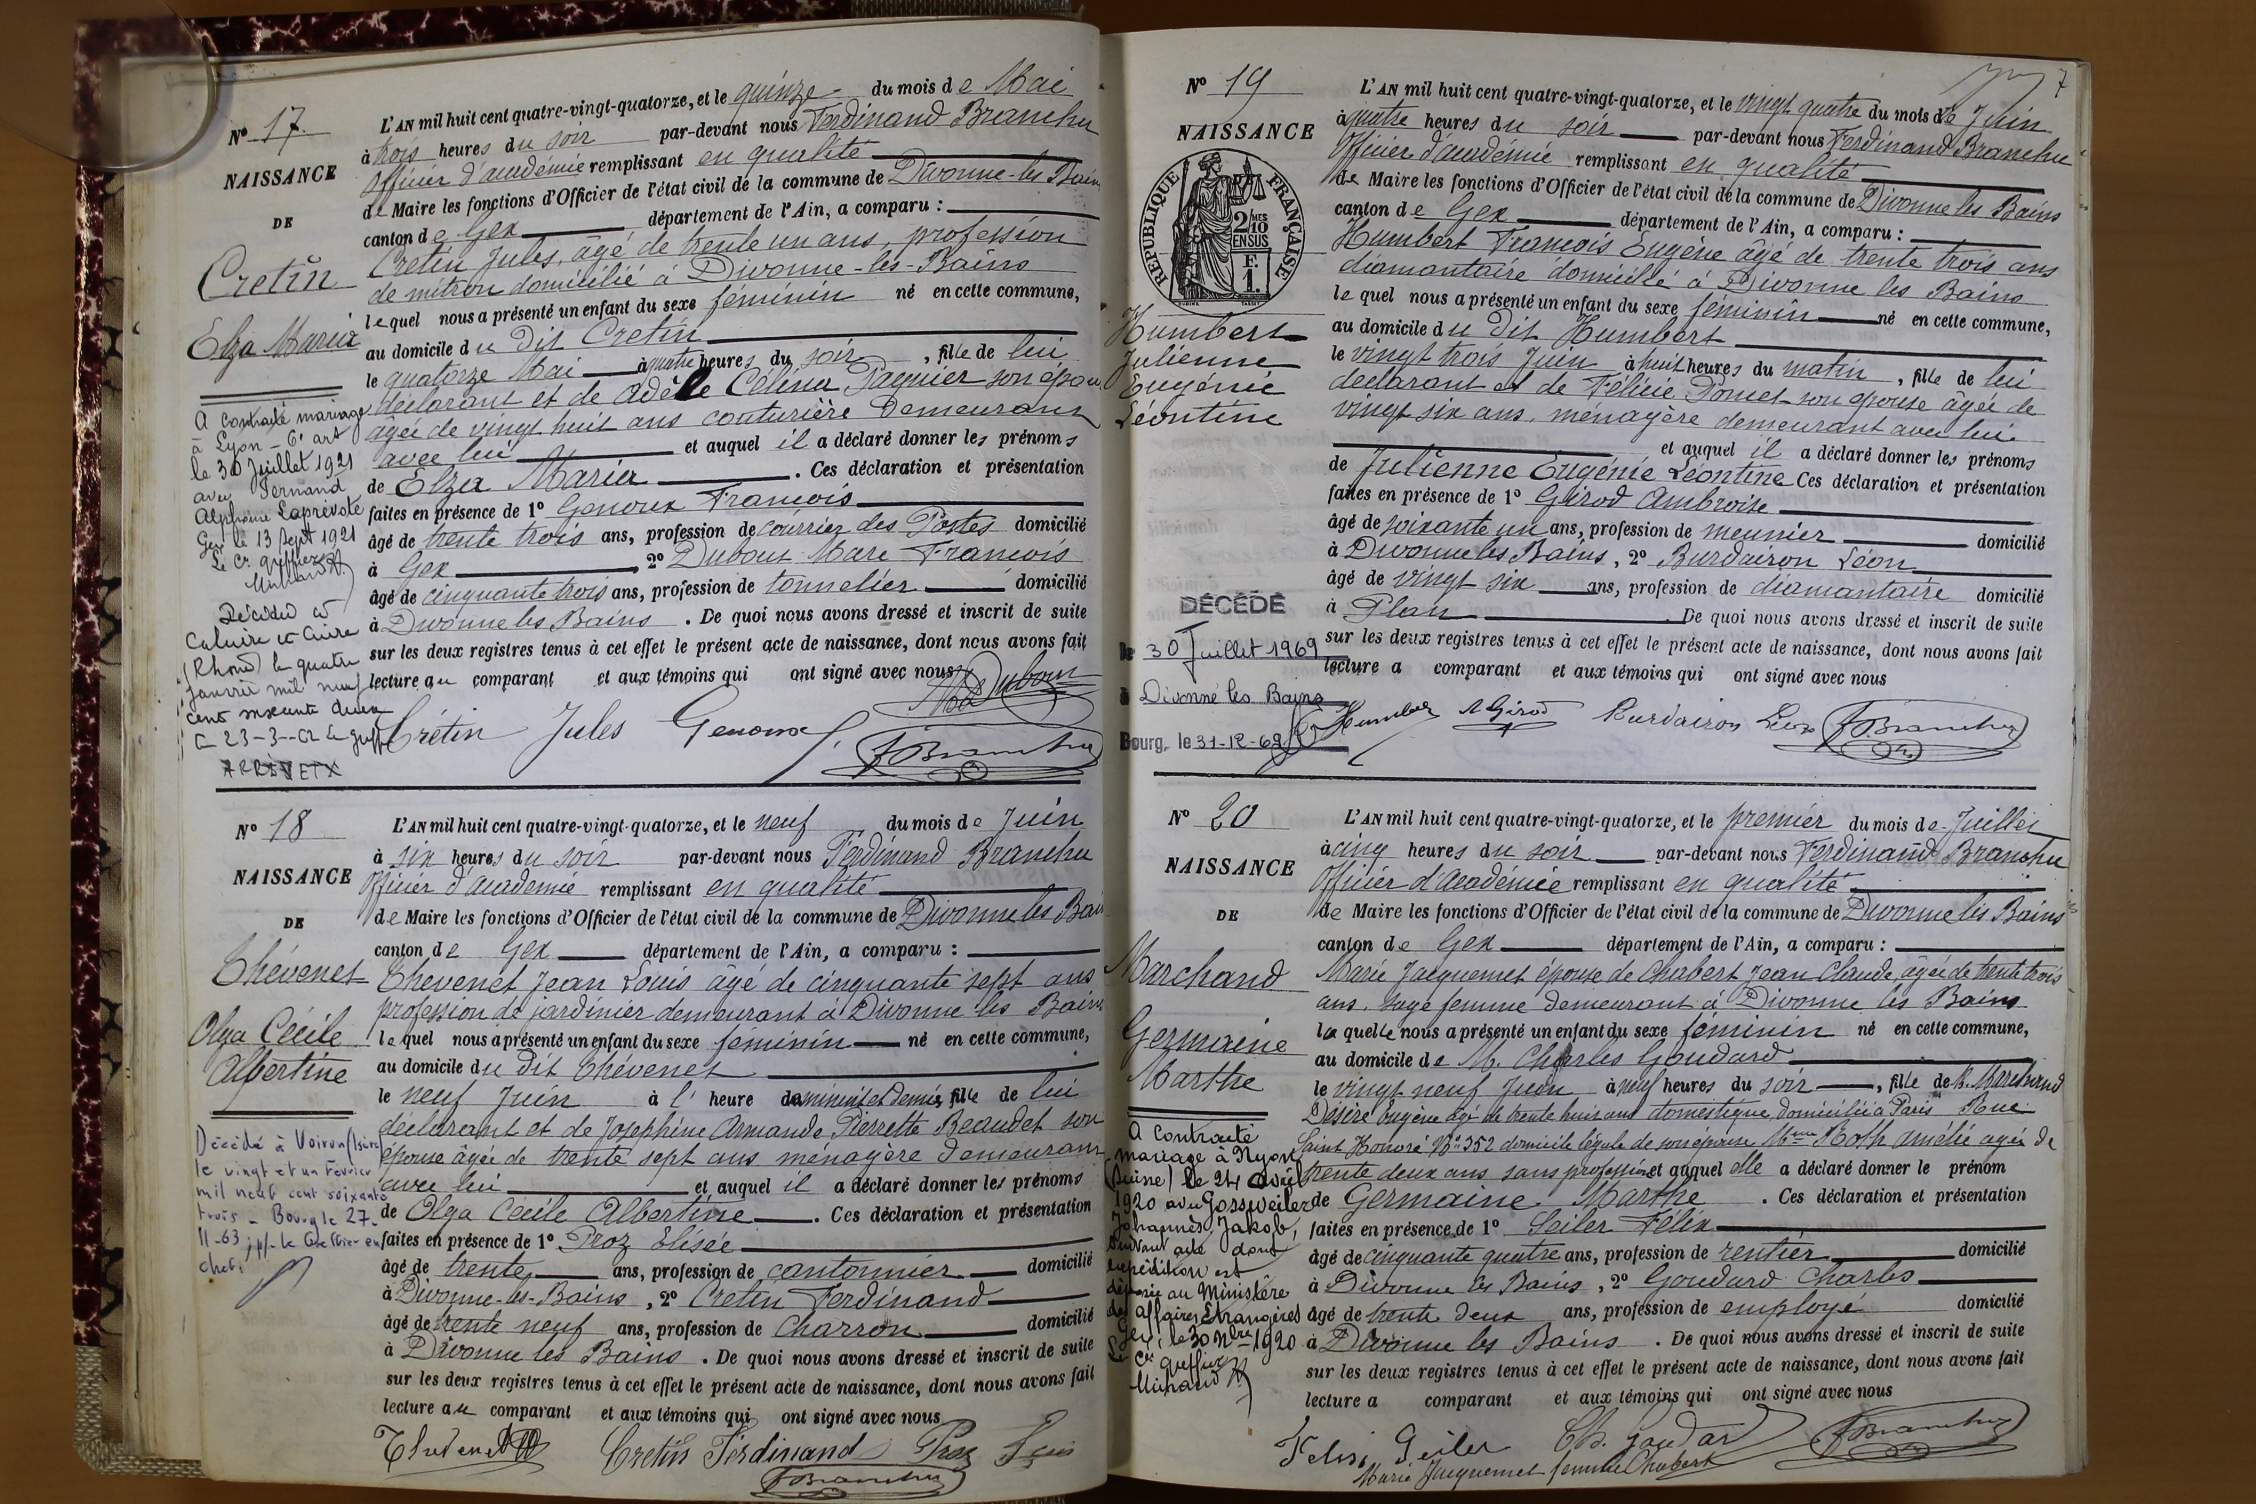 Nº 17
NAISSANCE
DE
Cretin
Elza Maria
A contracté mariage
à Lyon - 6e art
le 30 Juillet 1921
avec Fernand
Alphonse Laprévote
Gex le 13 Sept 1921
Le Cis greffier
Décédée à
Caluire et Cuire
(Rhône) le quatre
janvier mil neuf
cent soixante deux
le 23-3-62 le greff
L'AN mil huit cent quatre-vingt-quatorze, et le quinze du mois de Mai
à trois heures du soir par-devant nous Ferdinand Branchu
Officier d'académie remplissant en qualité
de Maire les fonctions d'Officier de l'état civil de la commune de Divonne-les-Bains
canton de Gex département de l'Ain, a comparu :
Cretin Jules, âgé de trente un ans, profession
de mitron domicilié à Divonne-les-Bains
lequel nous a présenté un enfant du sexe féminin né en cette commune,
au domicile du dit Cretin
le quatorze Mai à quatre heures du soir, fille de lui
déclarant et de Adèle Célina Paquier son épou
âgée de vingt huit ans couturière demeurant
avec lui et auquel il a déclaré donner les prénoms
de Elza Maria. Ces déclaration et présentation
faites en présence de 1º Genoux François
âgé de trente trois ans, profession de courrier des Postes domicilié
à Gex 2º Dubout Marc François
âgé de cinquante trois ans, profession de tonnelier domicilié
à Divonne les Bains. De quoi nous avons dressé et inscrit de suite
sur les deux registres tenus à cet effet le présent acte de naissance, dont nous avons fait
lecture au comparant et aux témoins qui ont signé avec nous
Crétin Jules Genoux f. FBranchu
Nº 18
NAISSANCE
DE
Thévenet
Olga Cécile
Albertine
Décédé à Voiron (Isère)
le vingt et un Février
mil neuf cent soixante
trois - Bourg le 27-
11-63 ; p/- le Greffier en
chef,
L'AN mil huit cent quatre-vingt-quatorze, et le neuf du mois de Juin
à six heures du soir par-devant nous Ferdinand Branchu
Officier d'académie remplissant en qualité
de Maire les fonctions d'Officier de l'état civil de la commune de Divonne les Bains
canton de Gex département de l'Ain, a comparu :
Thevenet Jean Louis âgé de cinquante sept ans
profession de jardinier demeurant à Divonne les Bains
lequel nous a présenté un enfant du sexe féminin né en cette commune,
au domicile du dit Thévenet
le neuf Juin à l' heure de minuit et demie, fille de lui
déclarant et de Joséphine Armande Pierrette Beaudet son
épouse âgée de trente sept ans ménagère demeurant
avec lui et auquel il a déclaré donner les prénoms
de Olga Cécile Albertine. Ces déclaration et présentation
faites en présence de 1º Proz Elisée
âgé de trente ans, profession de cantonnier domicilié
à Divonne-les-Bains, 2º Cretin Ferdinand
âgé de trente neuf ans, profession de charron domicilié
à Divonne les Bains. De quoi nous avons dressé et inscrit de suite
sur les deux registres tenus à cet effet le présent acte de naissance, dont nous avons fait
lecture au comparant et aux témoins qui ont signé avec nous
Thevenet Cretin Ferdinand Proz
FBranchu
7
Nº 19
NAISSANCE
RÉPUBLIQUE FRANÇAISE
2 MES
10
EN SUS
F.
1.
Humbert
Julienne
Eugénie
Léontine
DÉCÉDÉ
De 30 Juillet 1969
à Divonne les Bains
Bourg, le 31-12-69
L'AN mil huit cent quatre-vingt-quatorze, et le vingt quatre du mois de Juin
à quatre heures du soir par-devant nous Ferdinand Branchu
Officier d'académie remplissant en qualité
de Maire les fonctions d'Officier de l'état civil de la commune de Divonne les Bains
canton de Gex département de l'Ain, a comparu :
Humbert François Eugène âgé de trente trois ans
diamantaire domicilié à Divonne les Bains
lequel nous a présenté un enfant du sexe féminin né en cette commune,
au domicile du dit Humbert
le vingt trois Juin à huit heures du matin, fille de lui
déclarant et de Félicie Poncet son épouse âgée de
vingt six ans, ménagère demeurant avec lui
et auquel il a déclaré donner les prénoms
de Julienne Eugénie Léontine Ces déclaration et présentation
faites en présence de 1º Girod Ambroise
âgé de soixante un ans, profession de meunier domicilié
à Divonne les Bains, 2º Burdairon Léon
âgé de vingt six ans, profession de diamantaire domicilié
à Plan. De quoi nous avons dressé et inscrit de suite
sur les deux registres tenus à cet effet le présent acte de naissance, dont nous avons fait
lecture a comparant et aux témoins qui ont signé avec nous
Humbert A Girod Burdairon Léon FBranchu
Nº 20
NAISSANCE
DE
Marchand
Germaine
Marthe
A contracté
mariage à Nyon
(Suisse) le 24 avril
1920 avec Gossweiler
Johannès Jakob,
suivant acte dont
expédition est
déposée au Ministère
des affaires Etrangères
Gex, le 30 Nbre 1920
Le Cis greffier
L'AN mil huit cent quatre-vingt-quatorze, et le premier du mois de Juillet
à cinq heures du soir par-devant nous Ferdinand Branchu
Officier d'Académie remplissant en qualité
de Maire les fonctions d'Officier de l'état civil de la commune de Divonne les Bains
canton de Gex département de l'Ain, a comparu :
Marie Jacquemet épouse de Chabert Jean Claude, âgée de trente trois
ans, sage femme demeurant à Divonne les Bains
laquelle nous a présenté un enfant du sexe féminin né en cette commune,
au domicile de M. Charles Goudard
le vingt neuf Juin à neuf heures du soir, fille de M. Marchand
Désiré Eugène âgé de trente huit ans domestique domicilié à Paris Rue
Saint Honoré Nº 352 domicile légale de son épouse Mme Roth Amélie agée de
trente deux ans sans profession et auquel elle a déclaré donner le prénom
de Germaine Marthe. Ces déclaration et présentation
faites en présence de 1º Seiler Félix
âgé de cinquante quatre ans, profession de rentier domicilié
à Divonne les Bains, 2º Goudard Charles
âgé de trente deux ans, profession de employé domicilié
à Divonne les Bains. De quoi nous avons dressé et inscrit de suite
sur les deux registres tenus à cet effet le présent acte de naissance, dont nous avons fait
lecture a comparant et aux témoins qui ont signé avec nous
Felix Seiler Ch. Goudard FBranchu
Marie Jacquemet femme Chabert